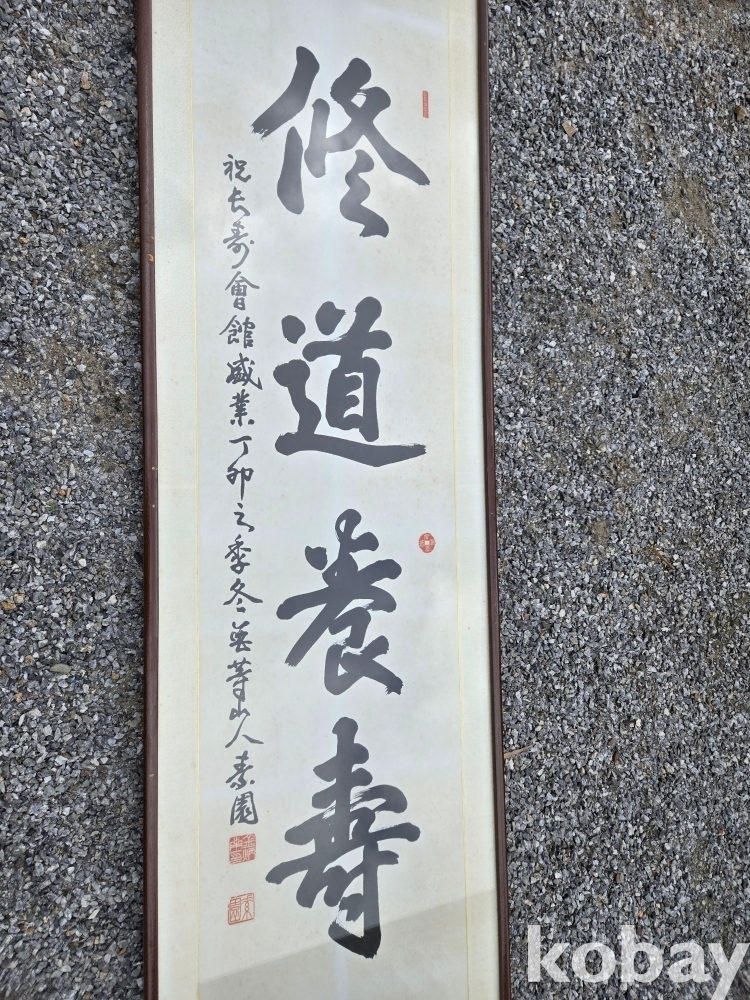 修道養壽
祝長壽會館盛業丁卯之季冬無等山人素園
kobay